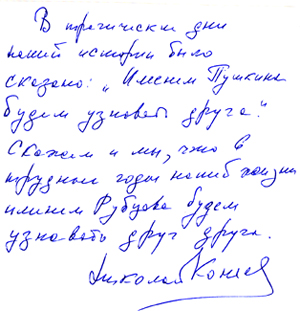 В трагические дни
нашей истории было
сказано: „Именем Пушкина
будем узнавать друга."
Скажем и мы, что в
трудные годы нашей жизни
именем Рубцова будем
узнавать друг друга.
Николай Коняев